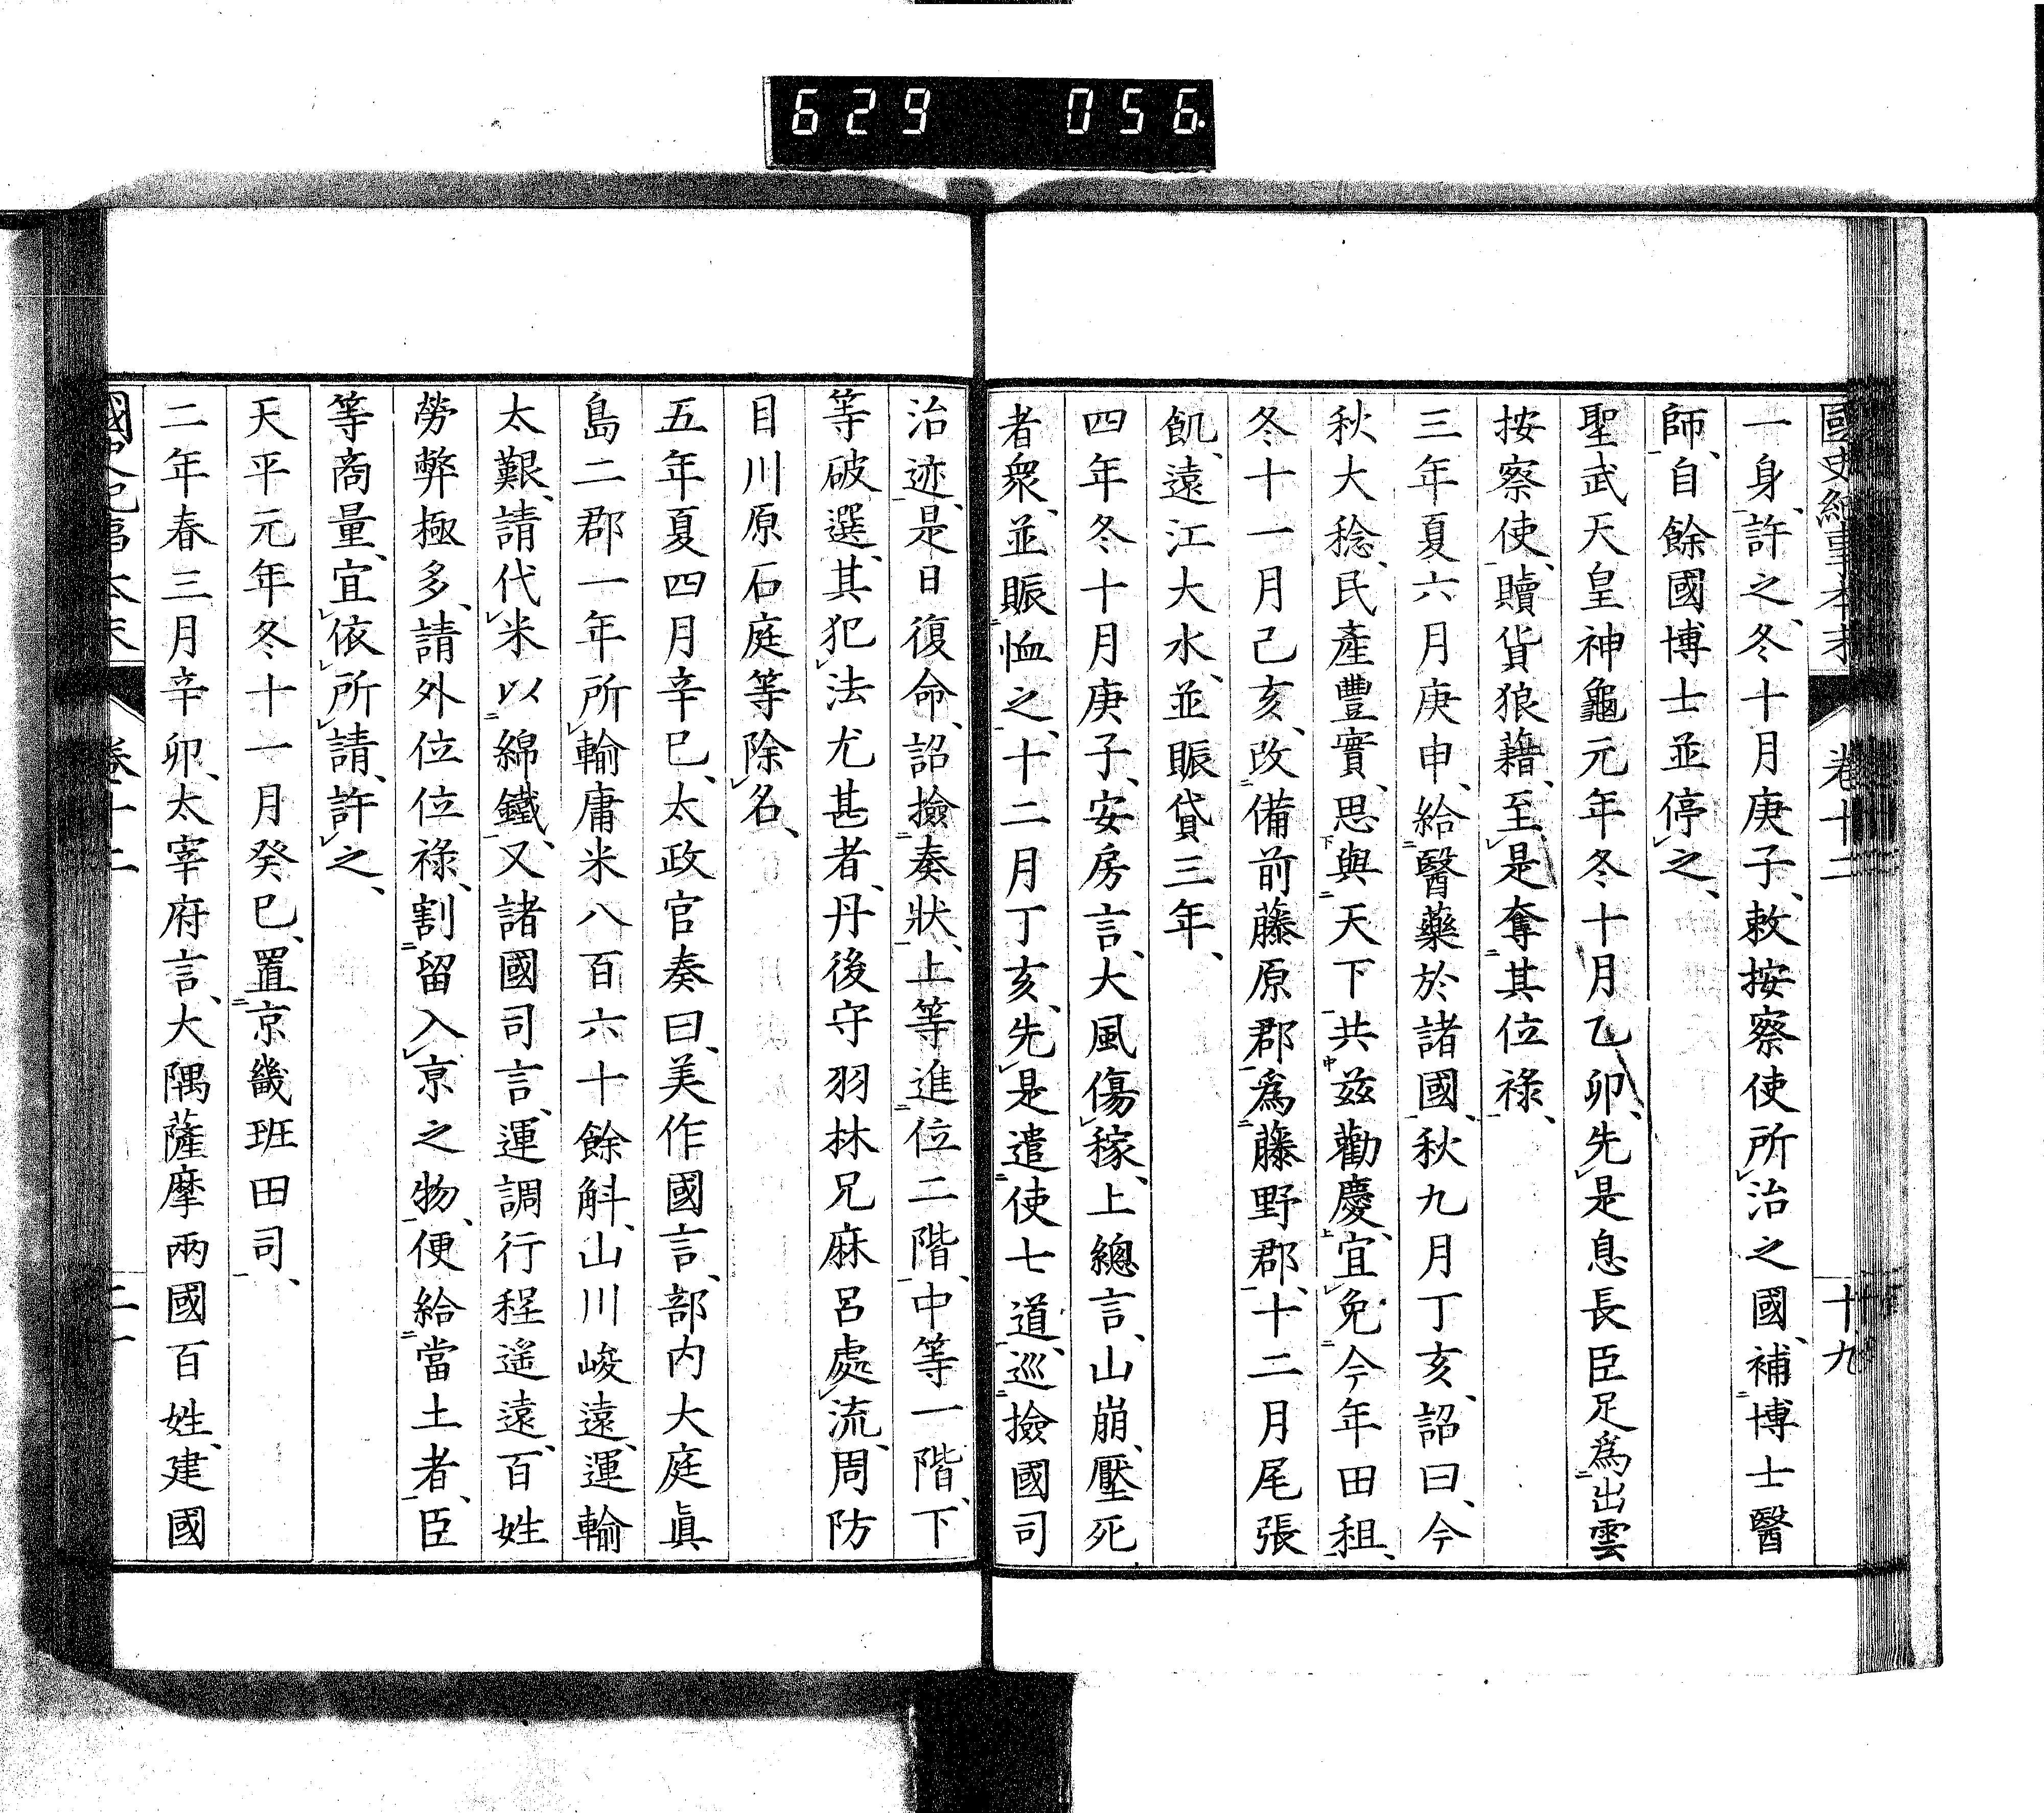 629 056
國史紀事本末 卷十二 十九
一身、許之、冬十月庚子、敕按察使所治之國、補博士醫
師、自餘國博士並停之、
聖武天皇神龜元年冬十月乙卯、先是息長臣足爲出雲
按察使、贖貨狼藉、至是奪其位祿、
三年夏六月庚申、給醫藥於諸國、秋九月丁亥、詔曰、今
秋大稔、民產豐實、思與天下共茲勸慶、宜免今年田租、
冬十一月己亥、改備前藤原郡爲藤野郡、十二月尾張
飢、遠江大水、並賑貸三年、
四年冬十月庚子、安房言、大風傷稼、上總言、山崩、壓死
者衆、並賑恤之、十二月丁亥、先是遣使七道、巡撿國司
治迹、是日復命、詔撿奏狀、上等進位二階、中等一階、下
等破選、其犯法尤甚者、丹後守羽林兄麻呂處流、周防
目川原石庭等除名、
五年夏四月辛巳、太政官奏曰、美作國言、部内大庭眞
島二郡一年所輸庸米八百六十餘斛、山川峻遠、運輸
太艱、請代米以綿鐵、又諸國司言、運調行程遙遠、百姓
勞弊極多、請外位位祿、割留入京之物、便給當土者、臣
等商量、宜依所請、許之、
天平元年冬十一月癸巳、置京畿班田司、
二年春三月辛卯、太宰府言、大隅薩摩兩國百姓、建國
國史紀事本末 卷十二 二十